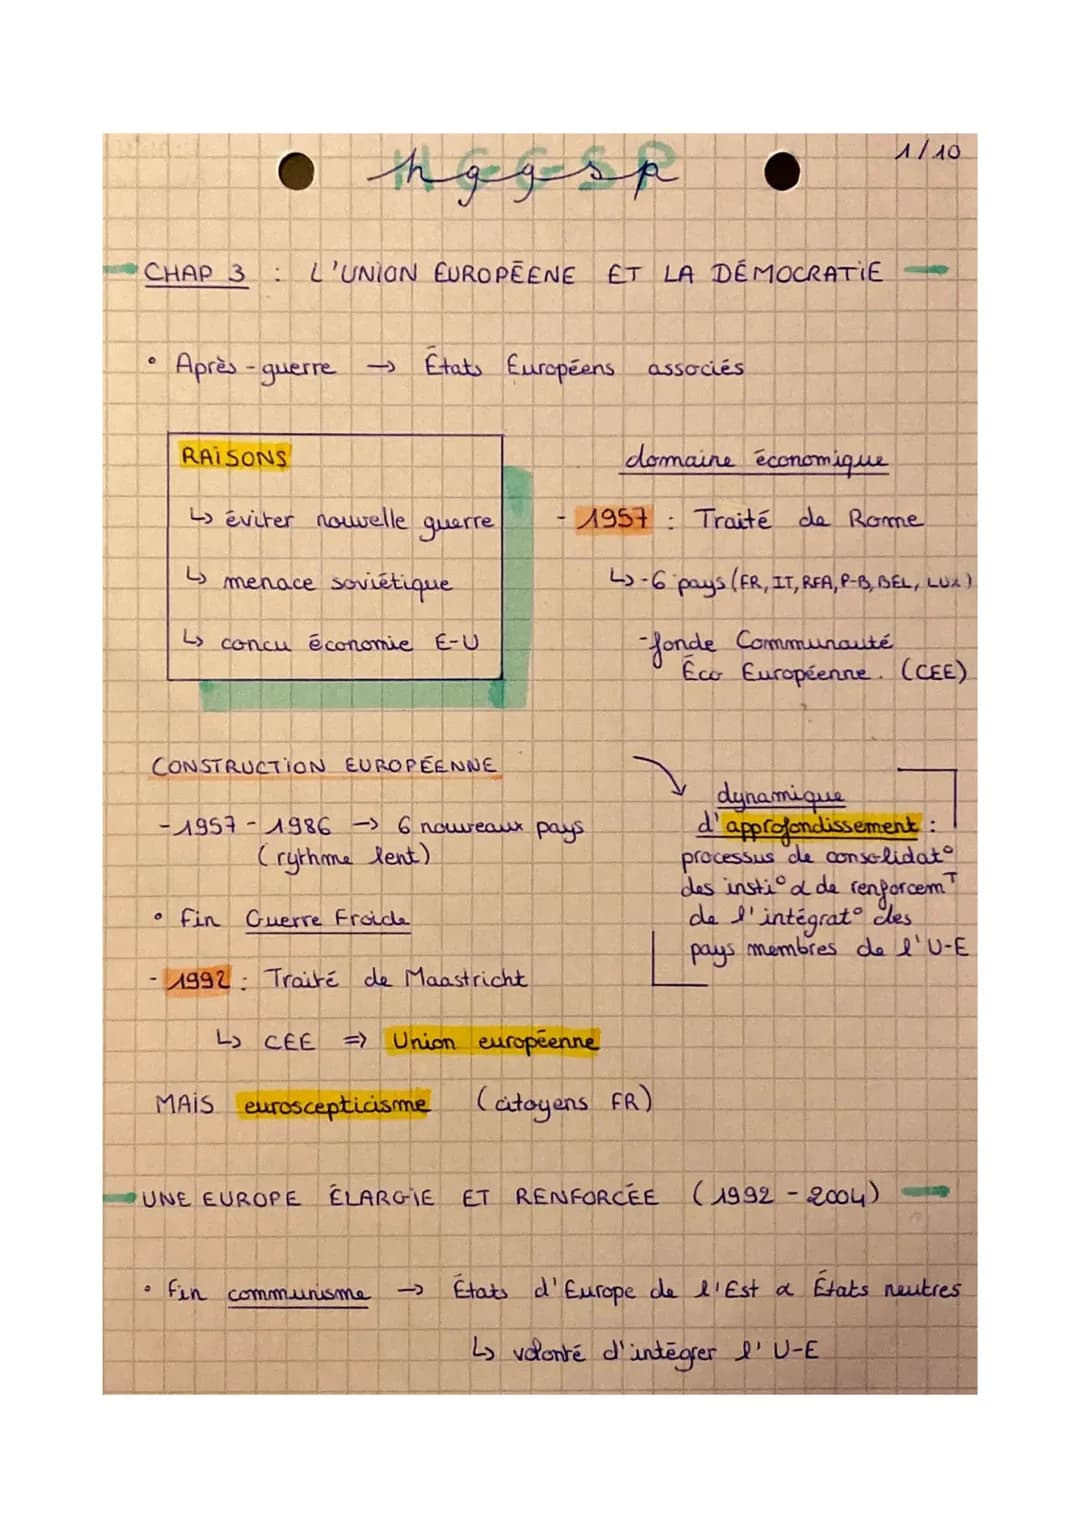 hggsp
HGGSP
1/10
CHAP 3 : L'UNION EUROPÉENE ET LA DÉMOCRATIE
• Après-guerre → États Européens associés
RAISONS
↳ éviter nouvelle guerre
↳ menace soviétique
↳ concu économie E-U
domaine économique
- 1957 : Traité de Rome
↳ - 6 pays (FR, IT, RFA, P-B, BEL, LUX)
- fonde Communauté
Éco Européenne. (CEE)
CONSTRUCTION EUROPÉENNE
- 1957 - 1986 → 6 nouveaux pays
(rythme lent)
• Fin Guerre Froide
- 1992 : Traité de Maastricht
↳ CEE ⇒ Union européenne
MAIS euroscepticisme (citoyens FR)
dynamique
d'approfondissement :
processus de consolidat°
des insti° & de renforcemT
de l'intégrat° des
pays membres de l'U-E
UNE EUROPE ÉLARGIE ET RENFORCÉE (1992 - 2004)
• Fin communisme → États d'Europe de l'Est & États neutres
↳ volonté d'intégrer l'U-E